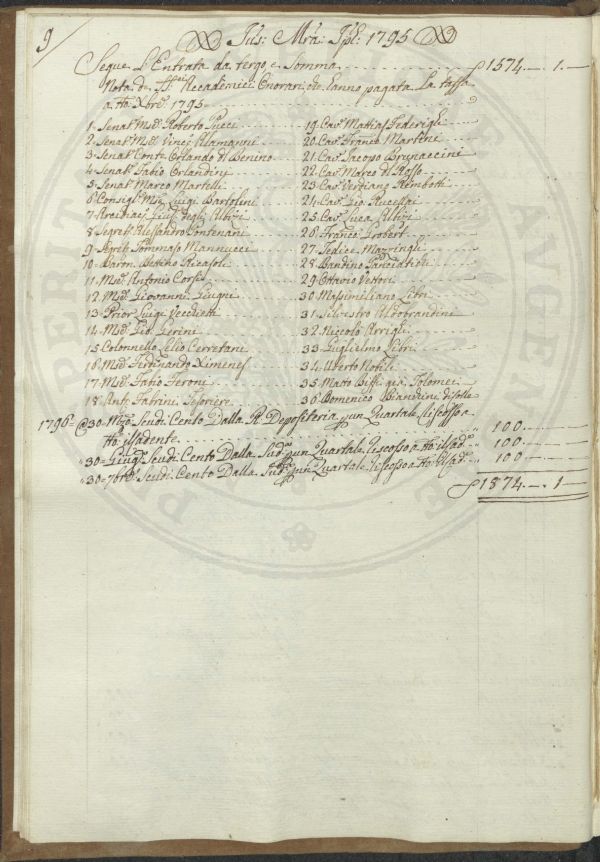 9
Jus: Mra: Jpl: 1795
Segue L'Entrata da tergo, e Somma 1574 . 1 . —
Nota de SS.ri Accademici Onorari, che hanno pagata La tassa
a tto Xbre 1795
1 - Senat.e M.se Roberto Pucci
2 - Senat.e M.se Vinc.o Alamanni
3 - Senat.e Conte Orlando Del Benino
4 - Senat.e Fabio Orlandini
5 - Senat.e Marco Martelli
6 - Consigl.re M.se Luigi Bartolini
7 - Arcidiac.o Gius.e degli Albizi
8 - Segret.o Alessandro Pontenani
9 - Segret.o Tommaso Mannucci
10 - Baron. Bettino Ricasoli
11 - M.se Antonio Corsi
12 - M.se Giovanni Giugni
13 - Prior Luigi Vecchietti
14 - M.se Gio. Gerini
15 - Colonnello Lelio Cerretani
16 - M.se Ferdinando Ximenes
17 - M.se Fabio Feroni
18 - Ant.o Fabrini Tesoriere
19 - Cav. Mattias Federighi
20 - Cav. Franco Martini
21 - Cav. Jacopo Brunaccini
22 - Cav. Marco Del Rosso
23 - Cav. Verdiano Rimbotti
24 - Cav. Gio. Rucellai
25 - Cav. Luca Albizi
26 - Franco Grobert
27 - Fedice Mazzinghi
28 - Bandino Panciatichi
29 - Ottavio Vettori
30 - Massimiliano Libri
31 - Silvestro Aldobrandini
32 - Niccolò Arrighi
33 - Guglielmo Libri
34 - Uberto Nobili
35 - Matto Biffi già Tolomei
36 - Domenico Blanchini
1796 @ 30 - M.zo Scudi Cento Dalla R. Depositeria p un Quartale, riscosso a
tto il sudente 100
" 30 = Giug.o Scudi Cento Dalla Sud.a p un Quartale riscosso a tto il sud.o 100
" 30 = 7bre Scudi Cento Dalla Sud.a p un Quartale riscosso a tto il sud.o 100
1874 . 1 —